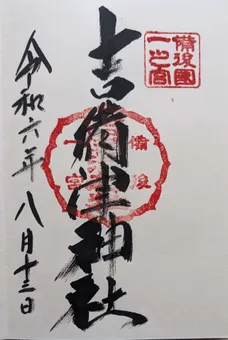 備後國
一之宮
吉備津神社
備後
一宮
令和六年八月十三日